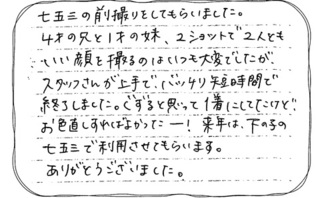 七五三の前撮りをしてもらいました。
4才の兄と1才の妹、2ショットで2人とも
いい顔を撮るのはいつも大変でしたが、
スタッフさんが上手で、バッチリ短時間で
終了しました。ぐずると思って1着にしてたけど
お色直しすればよかったー！来年は、下の子の
七五三で利用させてもらいます。
ありがとうございました。